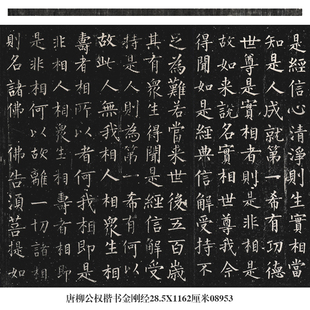 是經信心清淨則生實相當
知是人成就第一希有功德
世尊是實相者則是非相是
故如来說名實相世尊我今
得聞如是經典信解受持不
足為難若當来世後五百歲
其有眾生得聞是經信解受
持是人則為第一希有何以
故此人無我相人相眾生相
壽者相所以者何我相即是
非相人相眾生相壽者相即
是非相何以故離一切諸相
則名諸佛 佛告須菩提如
唐柳公权楷书金刚经28.5X1162厘米08953